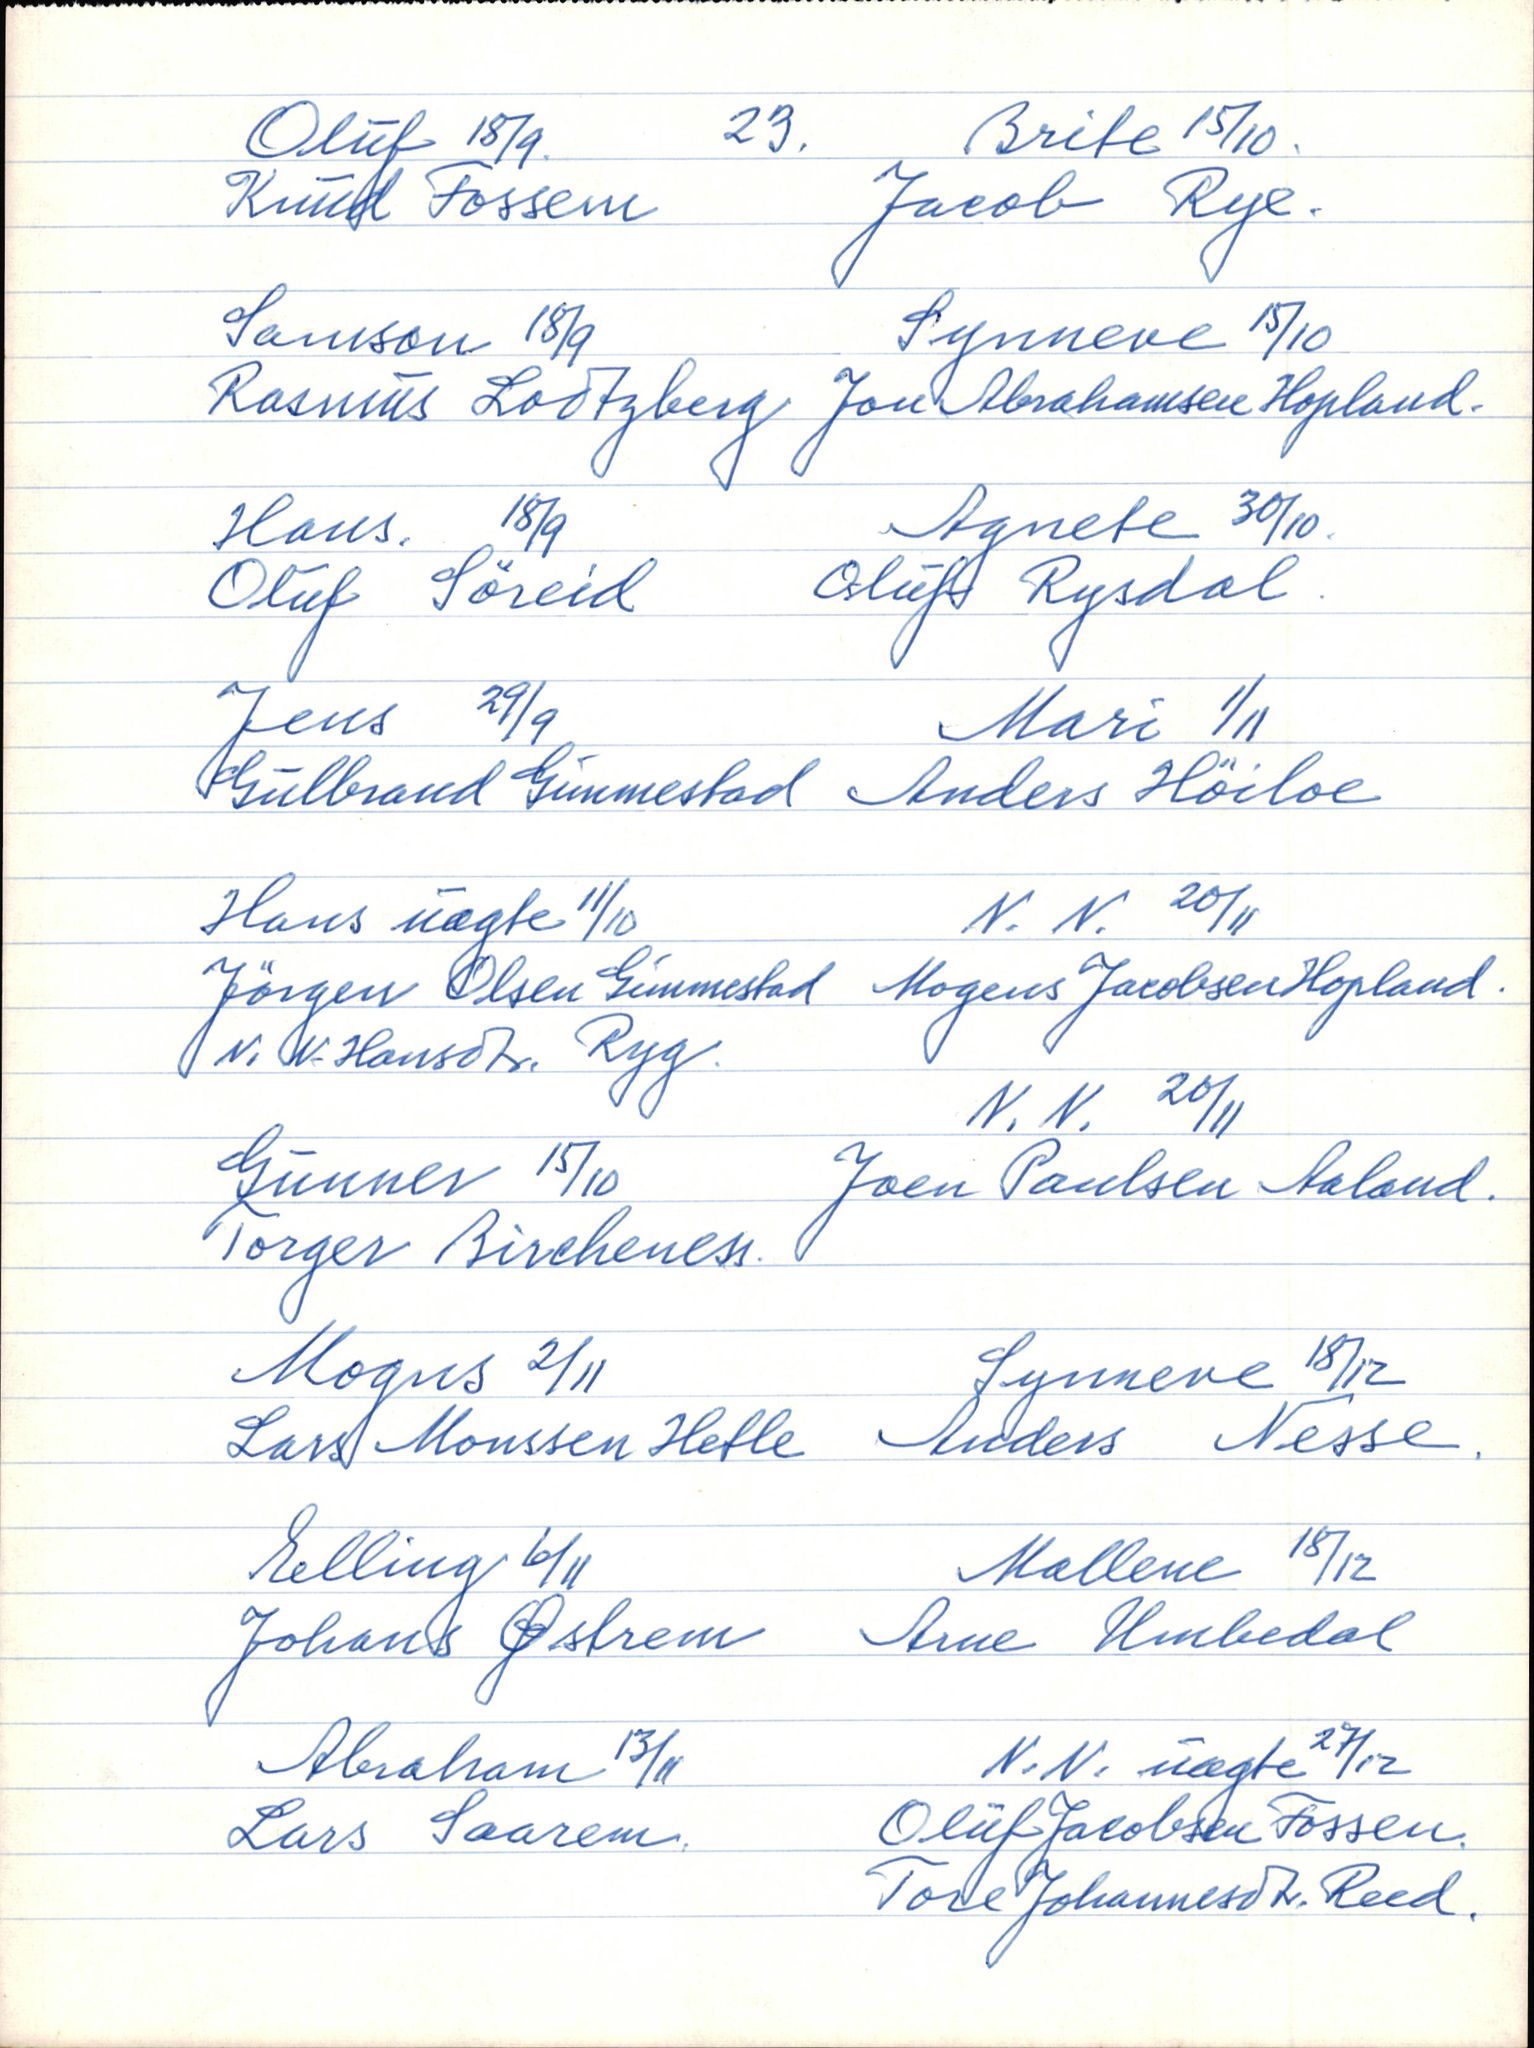 23.
Oluf 18/9.
Knud Fossem
Samson 18/9
Rasmus Lodtzberg
Hans. 18/9
Oluf Söreid
Jens 29/9
Gulbrand Gimmestad
Hans uægte 11/10
Jörgen Olsen Gimmestad
N. N. Hansdtr. Ryg.
Gunner 15/10
Torger Bircheness.
Mogns 2/11
Lars Monssen Hetle
Elling 6/11
Johans Østrem
Abraham 13/11
Lars Saarem.
Brite 15/10.
Jacob Rye.
Synneve 15/10
Jon Abrahamsen Hopland.
Agnete 30/10.
Olufs Rysdal.
Mari 1/11
Anders Höiloe
N. N. 20/11
Mogens Jacobsen Hopland.
N. N. 20/11
Joen Paulsen Aaland.
Synneve 18/12
Anders Nesse.
Mallene 18/12
Arne Umbedal
N. N. uægte 27/12
Oluf Jacobsen Fossen.
Tore Johannesdtr. Reed.